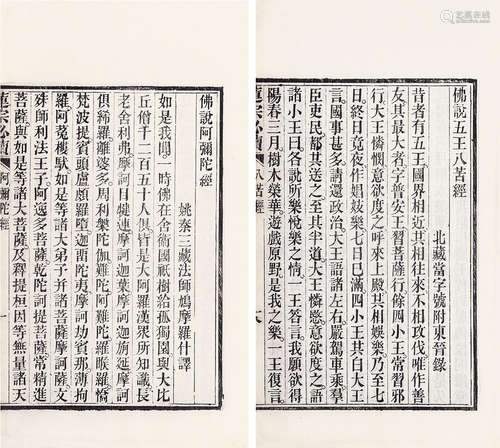 佛說五王八苦經
北藏當字號附東晉錄
昔者有五王國界相近其相往來不相攻伐唯作善
友其最大者字普安王習菩薩行餘四小王常習邪
行大王憐愍意欲度之呼來上殿共相娛樂乃至七
日終日竟夜作倡妓樂七日已滿四小王共白大王
言國事甚多請還政治大王語諸左右嚴駕車乘羣
臣吏民都共送之至其半道大王憐愍意欲度之語
諸小王曰各說所樂悅樂之情一王答言我願欲得
陽春三月樹木榮華遊戲原野是我之樂一王復言
蓮宗必讀 八苦經
佛說阿彌陀經
姚秦三藏法師鳩摩羅什譯
如是我聞一時佛在舍衞國祇樹給孤獨園與大比
丘僧千二百五十人俱皆是大阿羅漢眾所知識長
老舍利弗摩訶目犍連摩訶迦葉摩訶迦旃延摩訶
俱絺羅離婆多周利槃陀伽難陀阿難陀羅睺羅憍
梵波提賓頭盧頗羅墮迦留陀夷摩訶劫賓那薄拘
羅阿㝹樓馱如是等諸大弟子并諸菩薩摩訶薩文
殊師利法王子阿逸多菩薩乾陀訶提菩薩常精進
菩薩與如是等諸大菩薩及釋提桓因等無量諸天
蓮宗必讀 阿彌陀經 一